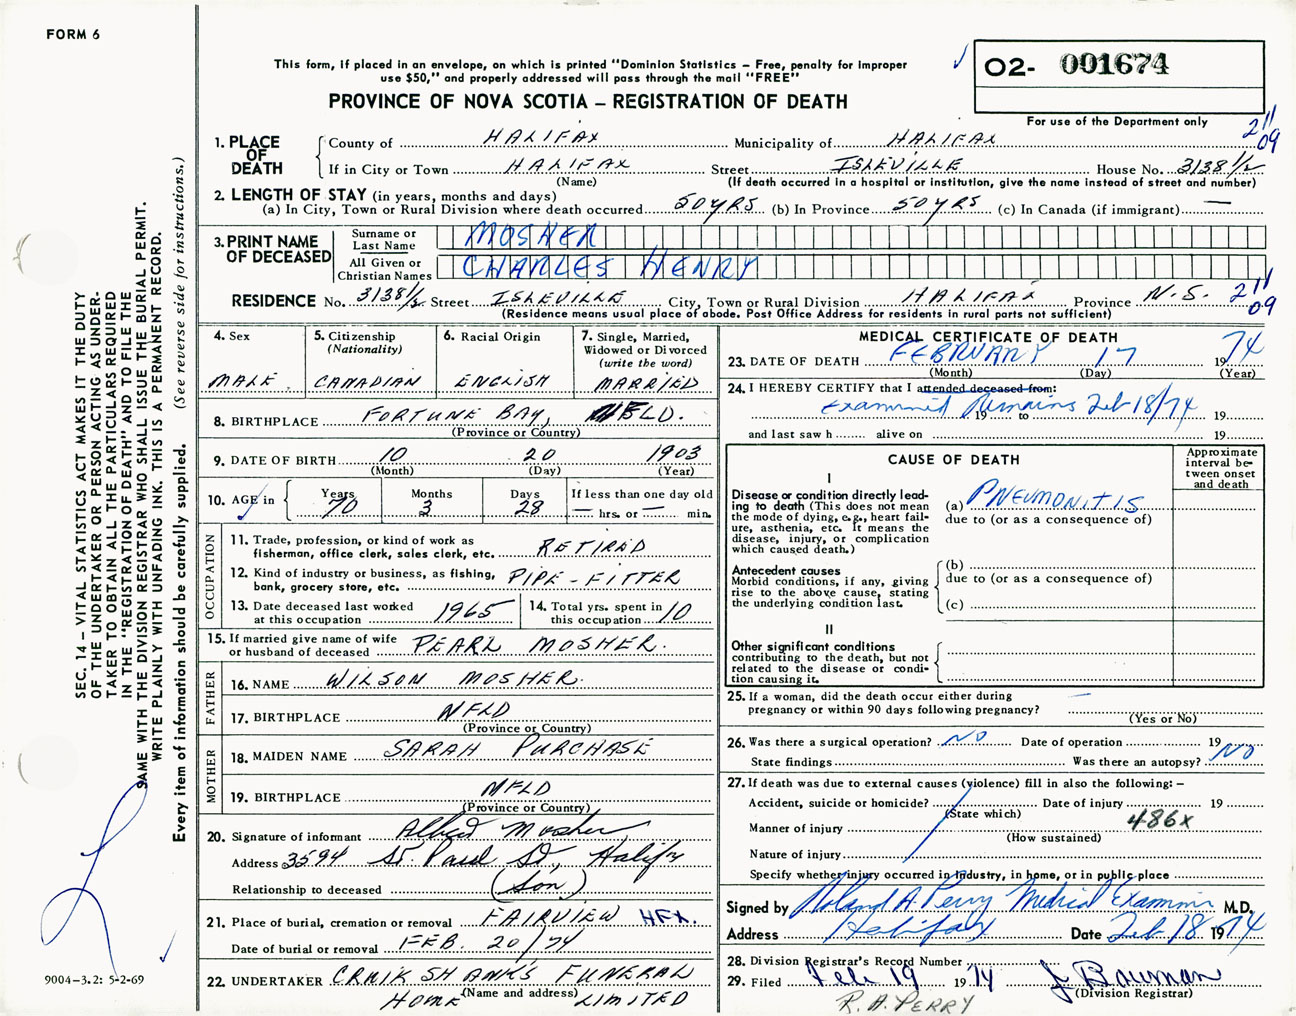 FORM 6
This form, if placed in an envelope, on which is printed "Dominion Statistics – Free, penalty for improper
use $50," and properly addressed will pass through the mail "FREE"
PROVINCE OF NOVA SCOTIA – REGISTRATION OF DEATH
02- 001674
For use of the Department only
211
09
1. PLACE OF DEATH County of HALIFAX Municipality of HALIFAX
If in City or Town HALIFAX Street ISLEVILLE House No. 3138 1/2
(Name) (If death occurred in a hospital or institution, give the name instead of street and number)
2. LENGTH OF STAY (in years, months and days)
(a) In City, Town or Rural Division where death occurred 50 YRS (b) In Province 50 YRS (c) In Canada (if immigrant) —
3. PRINT NAME OF DECEASED
Surname or Last Name MOSHER
All Given or Christian Names CHARLES HENRY
RESIDENCE No. 3138 1/2 Street ISLEVILLE City, Town or Rural Division HALIFAX Province N.S. 211
09
(Residence means usual place of abode. Post Office Address for residents in rural parts not sufficient)
4. Sex
MALE
5. Citizenship
(Nationality)
CANADIAN
6. Racial Origin
ENGLISH
7. Single, Married,
Widowed or Divorced
(write the word)
MARRIED
8. BIRTHPLACE FORTUNE BAY, NFLD.
(Province or Country)
9. DATE OF BIRTH 10 20 1903
(Month) (Day) (Year)
10. AGE in Years 70 Months 3 Days 28 If less than one day old
— hrs. or — min.
OCCUPATION
11. Trade, profession, or kind of work as
fisherman, office clerk, sales clerk, etc. RETIRED
12. Kind of industry or business, as fishing,
bank, grocery store, etc. PIPE-FITTER
13. Date deceased last worked
at this occupation 1965
14. Total yrs. spent in
this occupation 10
15. If married give name of wife
or husband of deceased PEARL MOSHER.
FATHER
16. NAME WILSON MOSHER.
17. BIRTHPLACE NFLD
(Province or Country)
MOTHER
18. MAIDEN NAME SARAH PURCHASE
19. BIRTHPLACE NFLD
(Province or Country)
20. Signature of informant Albert Mosher
Address 3594 St. Paul St., Halifx
Relationship to deceased (Son)
21. Place of burial, cremation or removal FAIRVIEW HFX.
Date of burial or removal FEB. 20/74
22. UNDERTAKER CRUIKSHANKS FUNERAL
HOME (Name and address) LIMITED
MEDICAL CERTIFICATE OF DEATH
23. DATE OF DEATH FEBRUARY 17 1974
(Month) (Day) (Year)
24. I HEREBY CERTIFY that I attended deceased from:
Examined Remains Feb 18/74 19 to 19
and last saw h alive on 19
CAUSE OF DEATH
Approximate
interval be-
tween onset
and death
I
Disease or condition directly lead-
ing to death (This does not
mean the mode of dying, e.g., heart fail-
ure, asthenia, etc. It means the
disease, injury, or complication
which caused death.)
(a) PNEUMONITIS
due to (or as a consequence of)
Antecedent causes
Morbid conditions, if any, giving
rise to the above cause, stating
the underlying condition last.
(b)
due to (or as a consequence of)
(c)
II
Other significant conditions
contributing to the death, but not
related to the disease or condi-
tion causing it.
25. If a woman, did the death occur either during
pregnancy or within 90 days following pregnancy? —
(Yes or No)
26. Was there a surgical operation? NO Date of operation 19
State findings Was there an autopsy? NO
27. If death was due to external causes (violence) fill in also the following: –
Accident, suicide or homicide? Date of injury 19
(State which)
Manner of injury 486x
(How sustained)
Nature of injury
Specify whether injury occurred in industry, in home, or in public place
Signed by Roland A. Perry Medical Examiner M.D.
Address Halifax Date Feb 18 1974
28. Division Registrar's Record Number
29. Filed Feb 19 1974 J Bauman
(Division Registrar)
R.A. PERRY
SEC. 14 – VITAL STATISTICS ACT MAKES IT THE DUTY
OF THE UNDERTAKER OR PERSON ACTING AS UNDER-
TAKER TO OBTAIN ALL THE PARTICULARS REQUIRED
IN THE "REGISTRATION OF DEATH" AND TO FILE THE
SAME WITH THE DIVISION REGISTRAR WHO SHALL ISSUE THE BURIAL PERMIT.
WRITE PLAINLY WITH UNFADING INK. THIS IS A PERMANENT RECORD.
Every item of information should be carefully supplied. (See reverse side for instructions.)
9004–3.2: 5-2-69